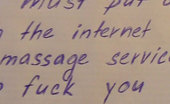 must put
the internet
massage servic
fuck you